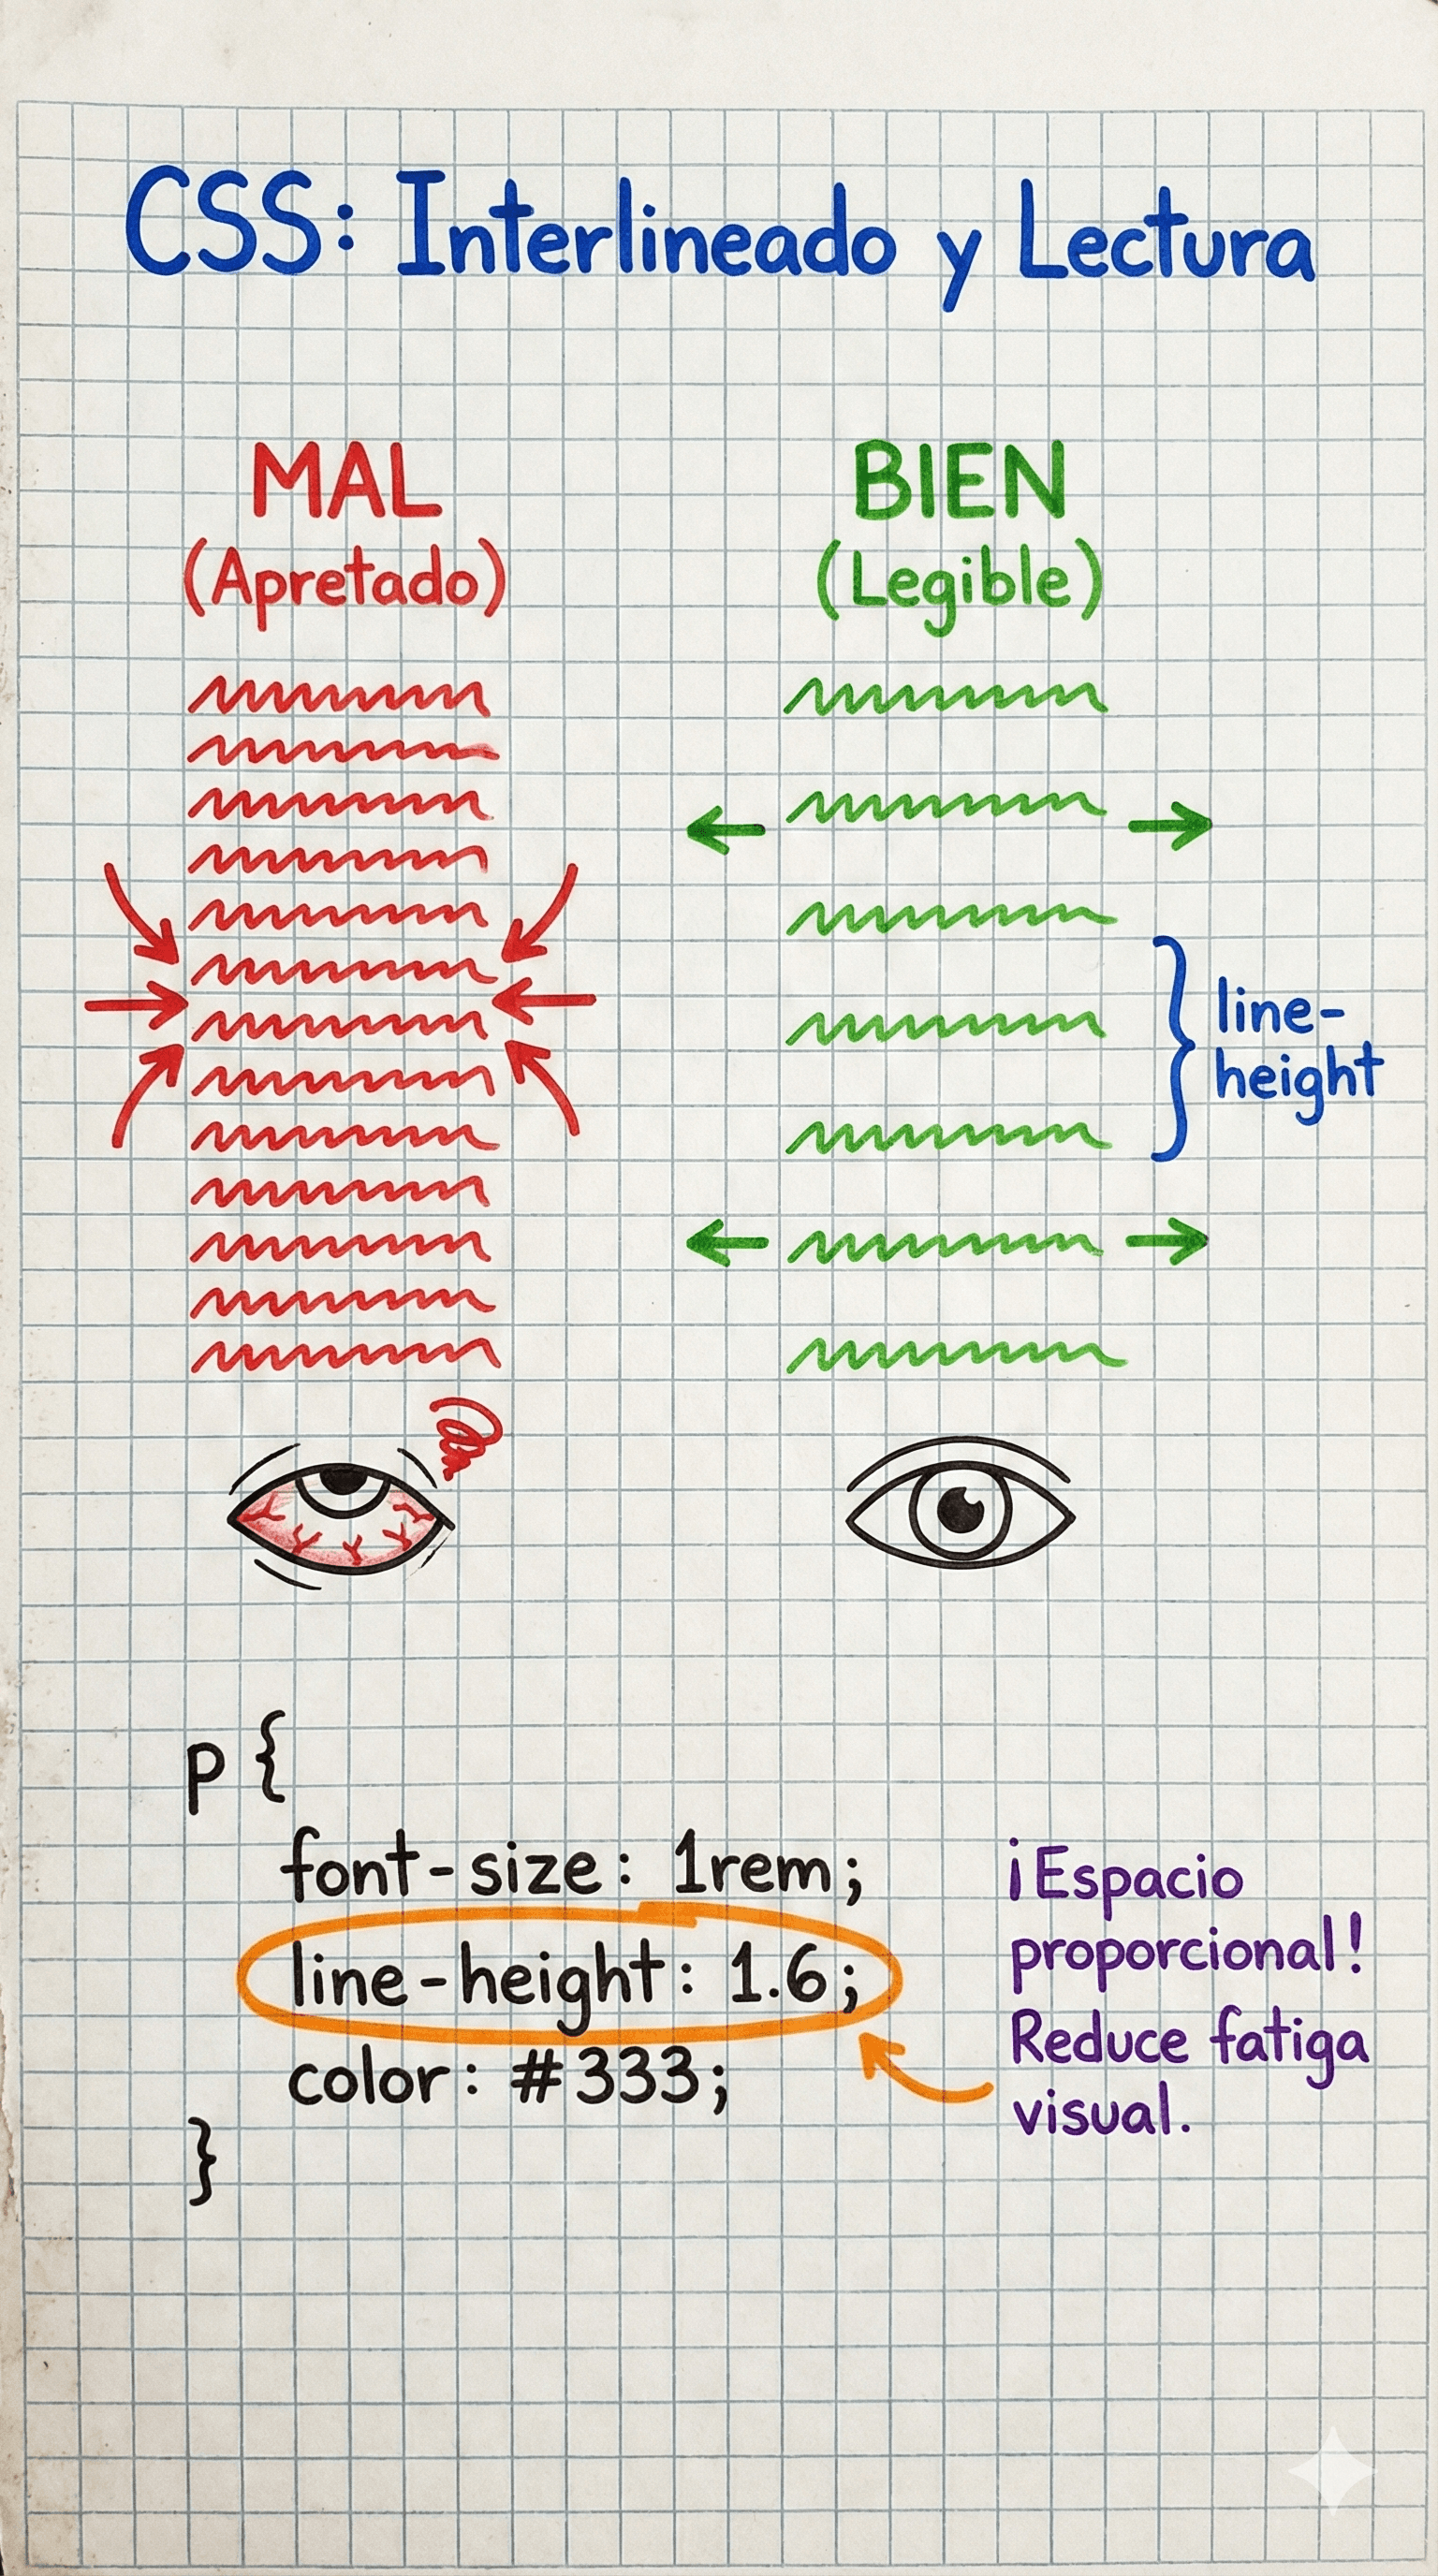 CSS: Interlineado y Lectura
MAL
(Apretado)
BIEN
(Legible)
line-
height
p {
font-size: 1rem;
line-height: 1.6;
color: #333;
}
¡Espacio
proporcional!
Reduce fatiga
visual.